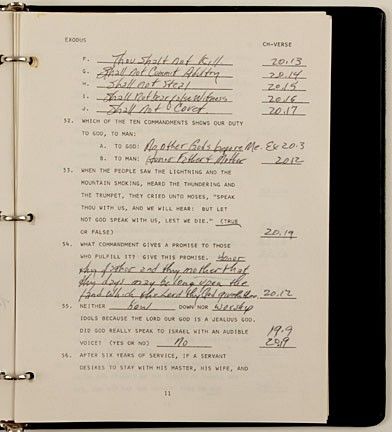 EXODUS CH-VERSE
F. Thou Shalt not Kill 20:13
G. Shall not Commit Adultry 20:14
H. Shall not Steal 20:15
I. Shall not bear false Witness 20:16
J. Shall not Covet 20:17
52. WHICH OF THE TEN COMMANDMENTS SHOWS OUR DUTY
TO GOD, TO MAN:
A. TO GOD: No other Gods before Me. Ex 20:3
B. TO MAN: Honor Father & Mother 20:12
53. WHEN THE PEOPLE SAW THE LIGHTNING AND THE
MOUNTAIN SMOKING, HEARD THE THUNDERING AND
THE TRUMPET, THEY CRIED UNTO MOSES, "SPEAK
THOU WITH US, AND WE WILL HEAR: BUT LET
NOT GOD SPEAK WITH US, LEST WE DIE." (TRUE
OR FALSE) 20:19
54. WHAT COMMANDMENT GIVES A PROMISE TO THOSE
WHO FULFILL IT? GIVE THIS PROMISE. Honor
thy father and thy mother that
thy days may be long upon the
land which the Lord thy God giveth thee. 20:12
55. NEITHER bow DOWN NOR Worship
IDOLS BECAUSE THE LORD OUR GOD IS A JEALOUS GOD.
DID GOD REALLY SPEAK TO ISRAEL WITH AN AUDIBLE 19:9
VOICE? (YES OR NO) No 20:19
56. AFTER SIX YEARS OF SERVICE, IF A SERVANT
DESIRES TO STAY WITH HIS MASTER, HIS WIFE, AND
11